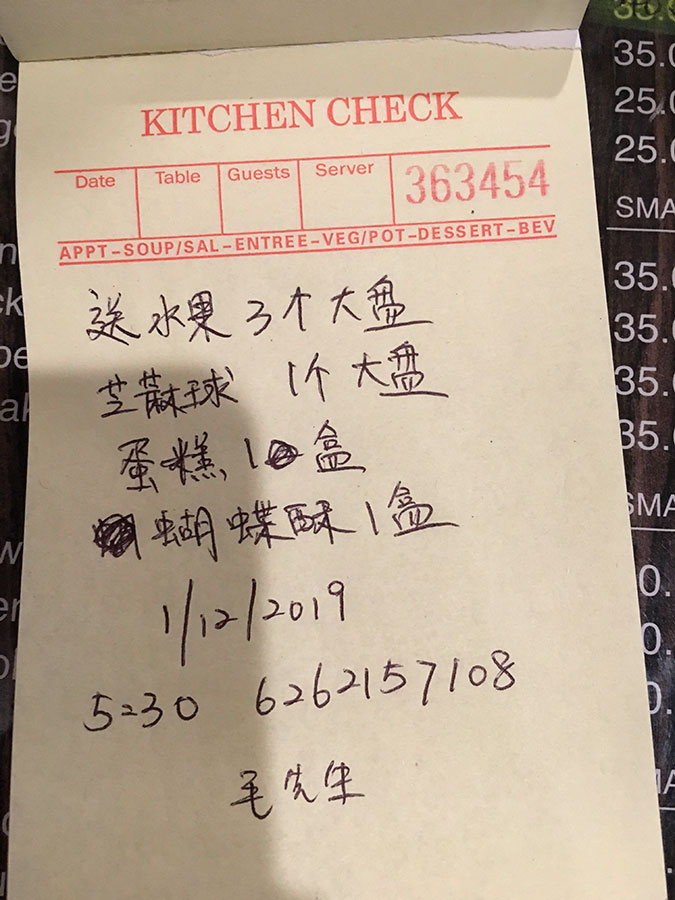 KITCHEN CHECK
Date Table Guests Server 363454
APPT-SOUP/SAL-ENTREE-VEG/POT-DESSERT-BEV
送水果3个大盘
芝蔴球 1个大盘
蛋糕1盒
蝴蝶酥1盒
1/12/2019
5:30 6262157108
毛先生
35.0
25.0
25.0
SMA
35.0
35.0
35.0
35.0
SMA